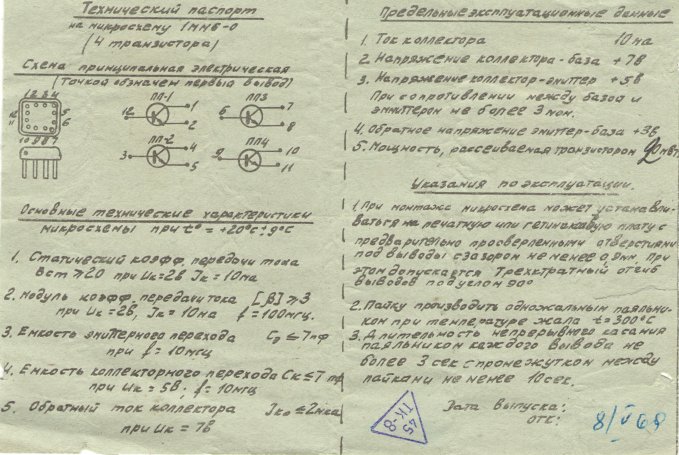 Технический паспорт
на микросхему 1ММ6-0
(4 транзистора)
Схема принципиальная электрическая
(Точкой обозначен первый вывод)
1 2 3 4
12
11
5
6
10 9 8 7
ПП-1
12
1
2
ПП3
6
7
8
ПП-2
3
4
5
ПП4
9
10
11
Основные технические характеристики
микросхемы при t° = +20°C ± 9°C
1. Статический коэфф. передачи тока
Вст ≥ 20 при Uк=2В Iк = 10ма
2. Модуль коэфф. передачи тока [β] ≥ 3
при Uк = 2В, Iк = 10ма f = 100мгц.
3. Емкость эмиттерного перехода Сэ ≤ 7пф
при f = 10мгц
4. Емкость коллекторного перехода Ск ≤ 7 пф
при Uк = 5В; f = 10мгц
5. Обратный ток коллектора Iко ≤ 2мка
при Uк = 7В
Предельные эксплуатационные данные
1. Ток коллектора 10ма
2. Напряжение коллектора-база + 7В
3. Напряжение коллектор-эмиттер + 5В
При сопротивлении между базой и
эмиттером не более 3 ком.
4. Обратное напряжение эмиттер-база +3В
5. Мощность, рассеиваемая транзистором 20мвт,
Указания по эксплуатации.
1. При монтаже микросхема может устанавли-
ваться на печатную или гетинаксовую плату с
предварительно просверленными отверстиями
под выводы с зазором не менее 0,9мм. При
этом допускается Трехкратный отгиб
выводов под углом 90°
2. Пайку производить одножальным паяльни-
ком при температуре жала t = 300°C
3. Длительность непрерывного касания
паяльником каждого вывода не
более 3 сек с промежутком между
пайками не менее 10сек.
Дата выпуска:
ОТК:
8/V 68
45
ТК-8